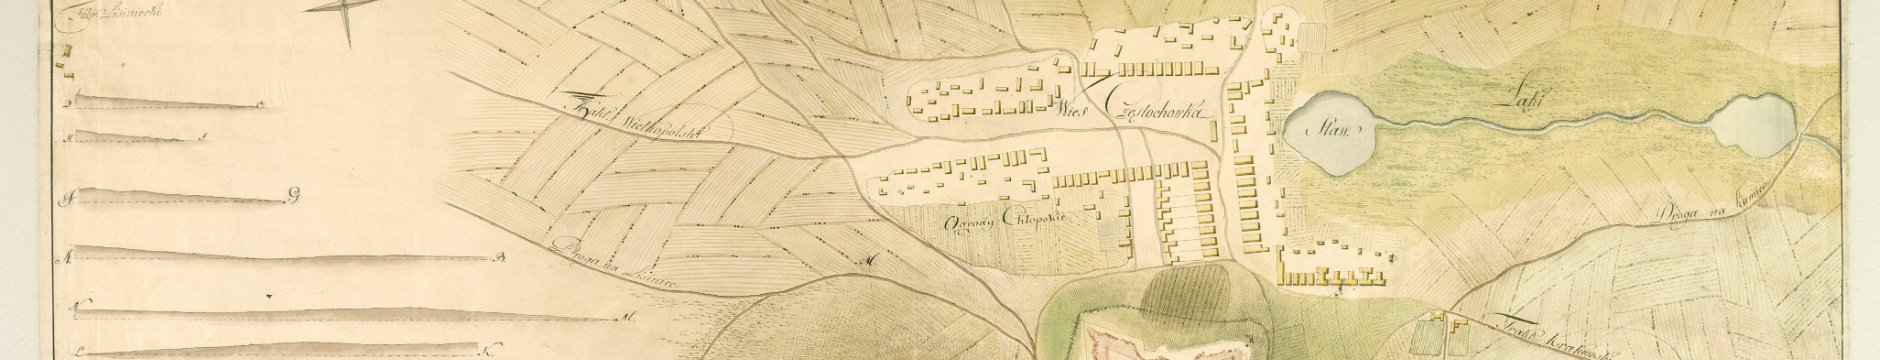 Folw. Liśiniecki
D C
H I
F G
A B
N M
L K
Trakt Wielkopolski
Wies Częstochowka
Staw.
Łąki
Ogrody Chłopskie
Droga na Lisiniec
M
Droga na Kamien
Trakt Krakowski
K